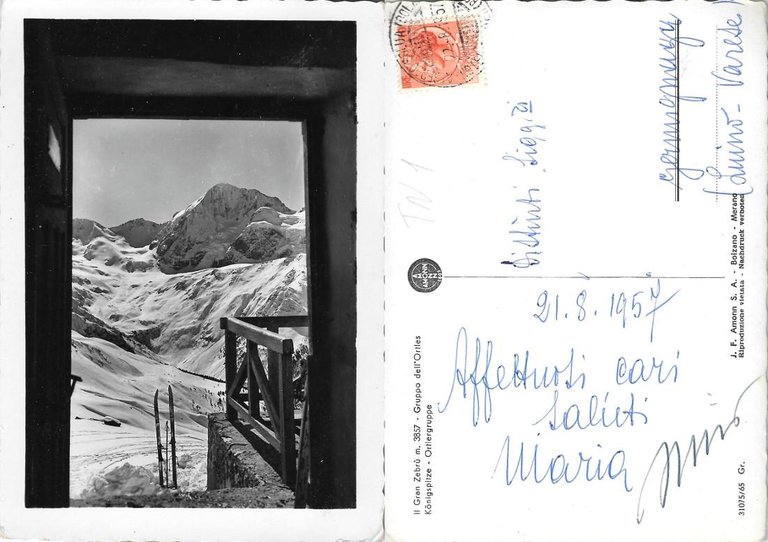 Il Gran Zebrù m. 3857 - Gruppo dell'Ortles
Königspitze - Ortlergruppe
TN 1
21.8.1957
Affettuosi cari
saluti
Maria
germignaga
(Luino - Varese)
J. F. Amonn S. A. - Bolzano - Merano
Riproduzione vietata - Nachdruck verboten
31075/65 Gr.